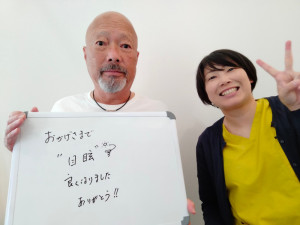 おかげさまで
"目眩"
良くなりました
ありがとう!!